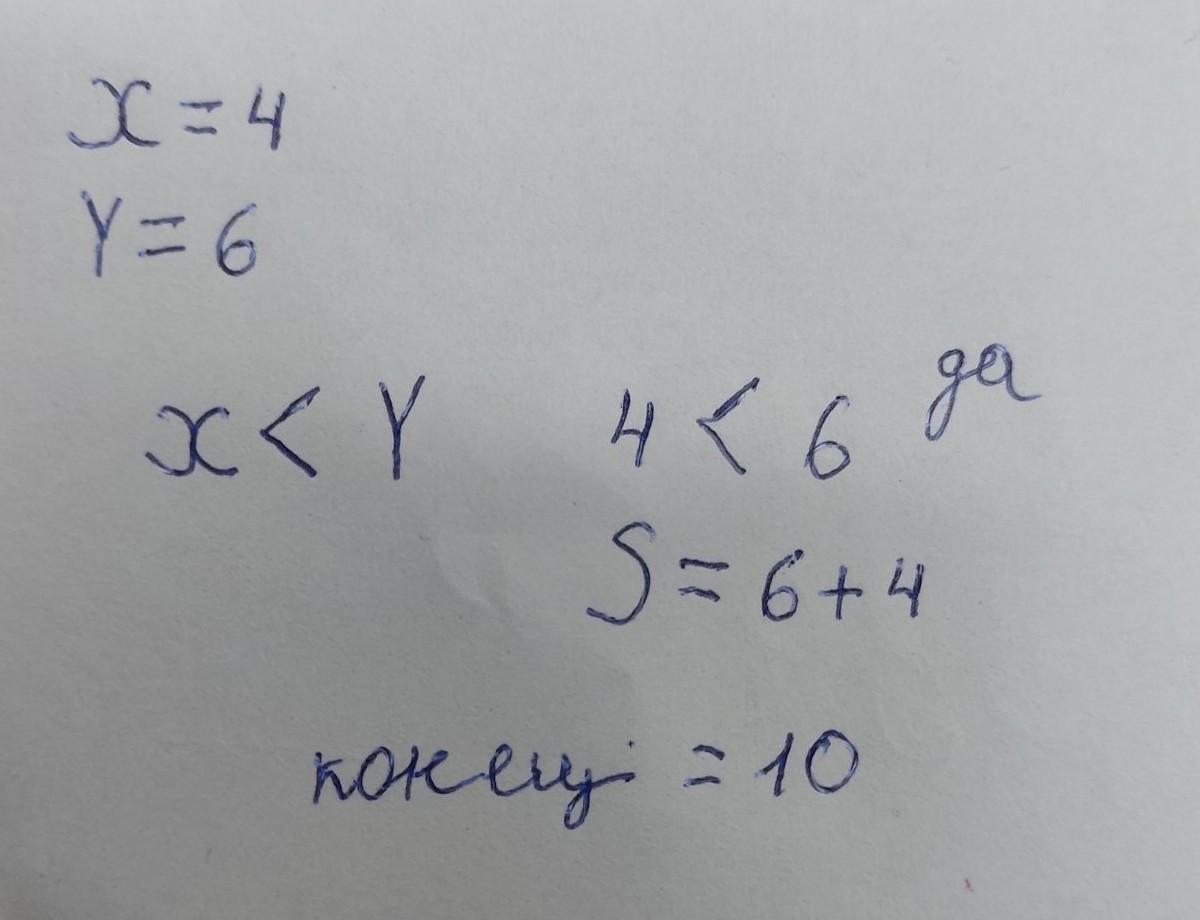 x = 4
Y = 6
x < Y 4 < 6 да
S = 6 + 4
конец = 10